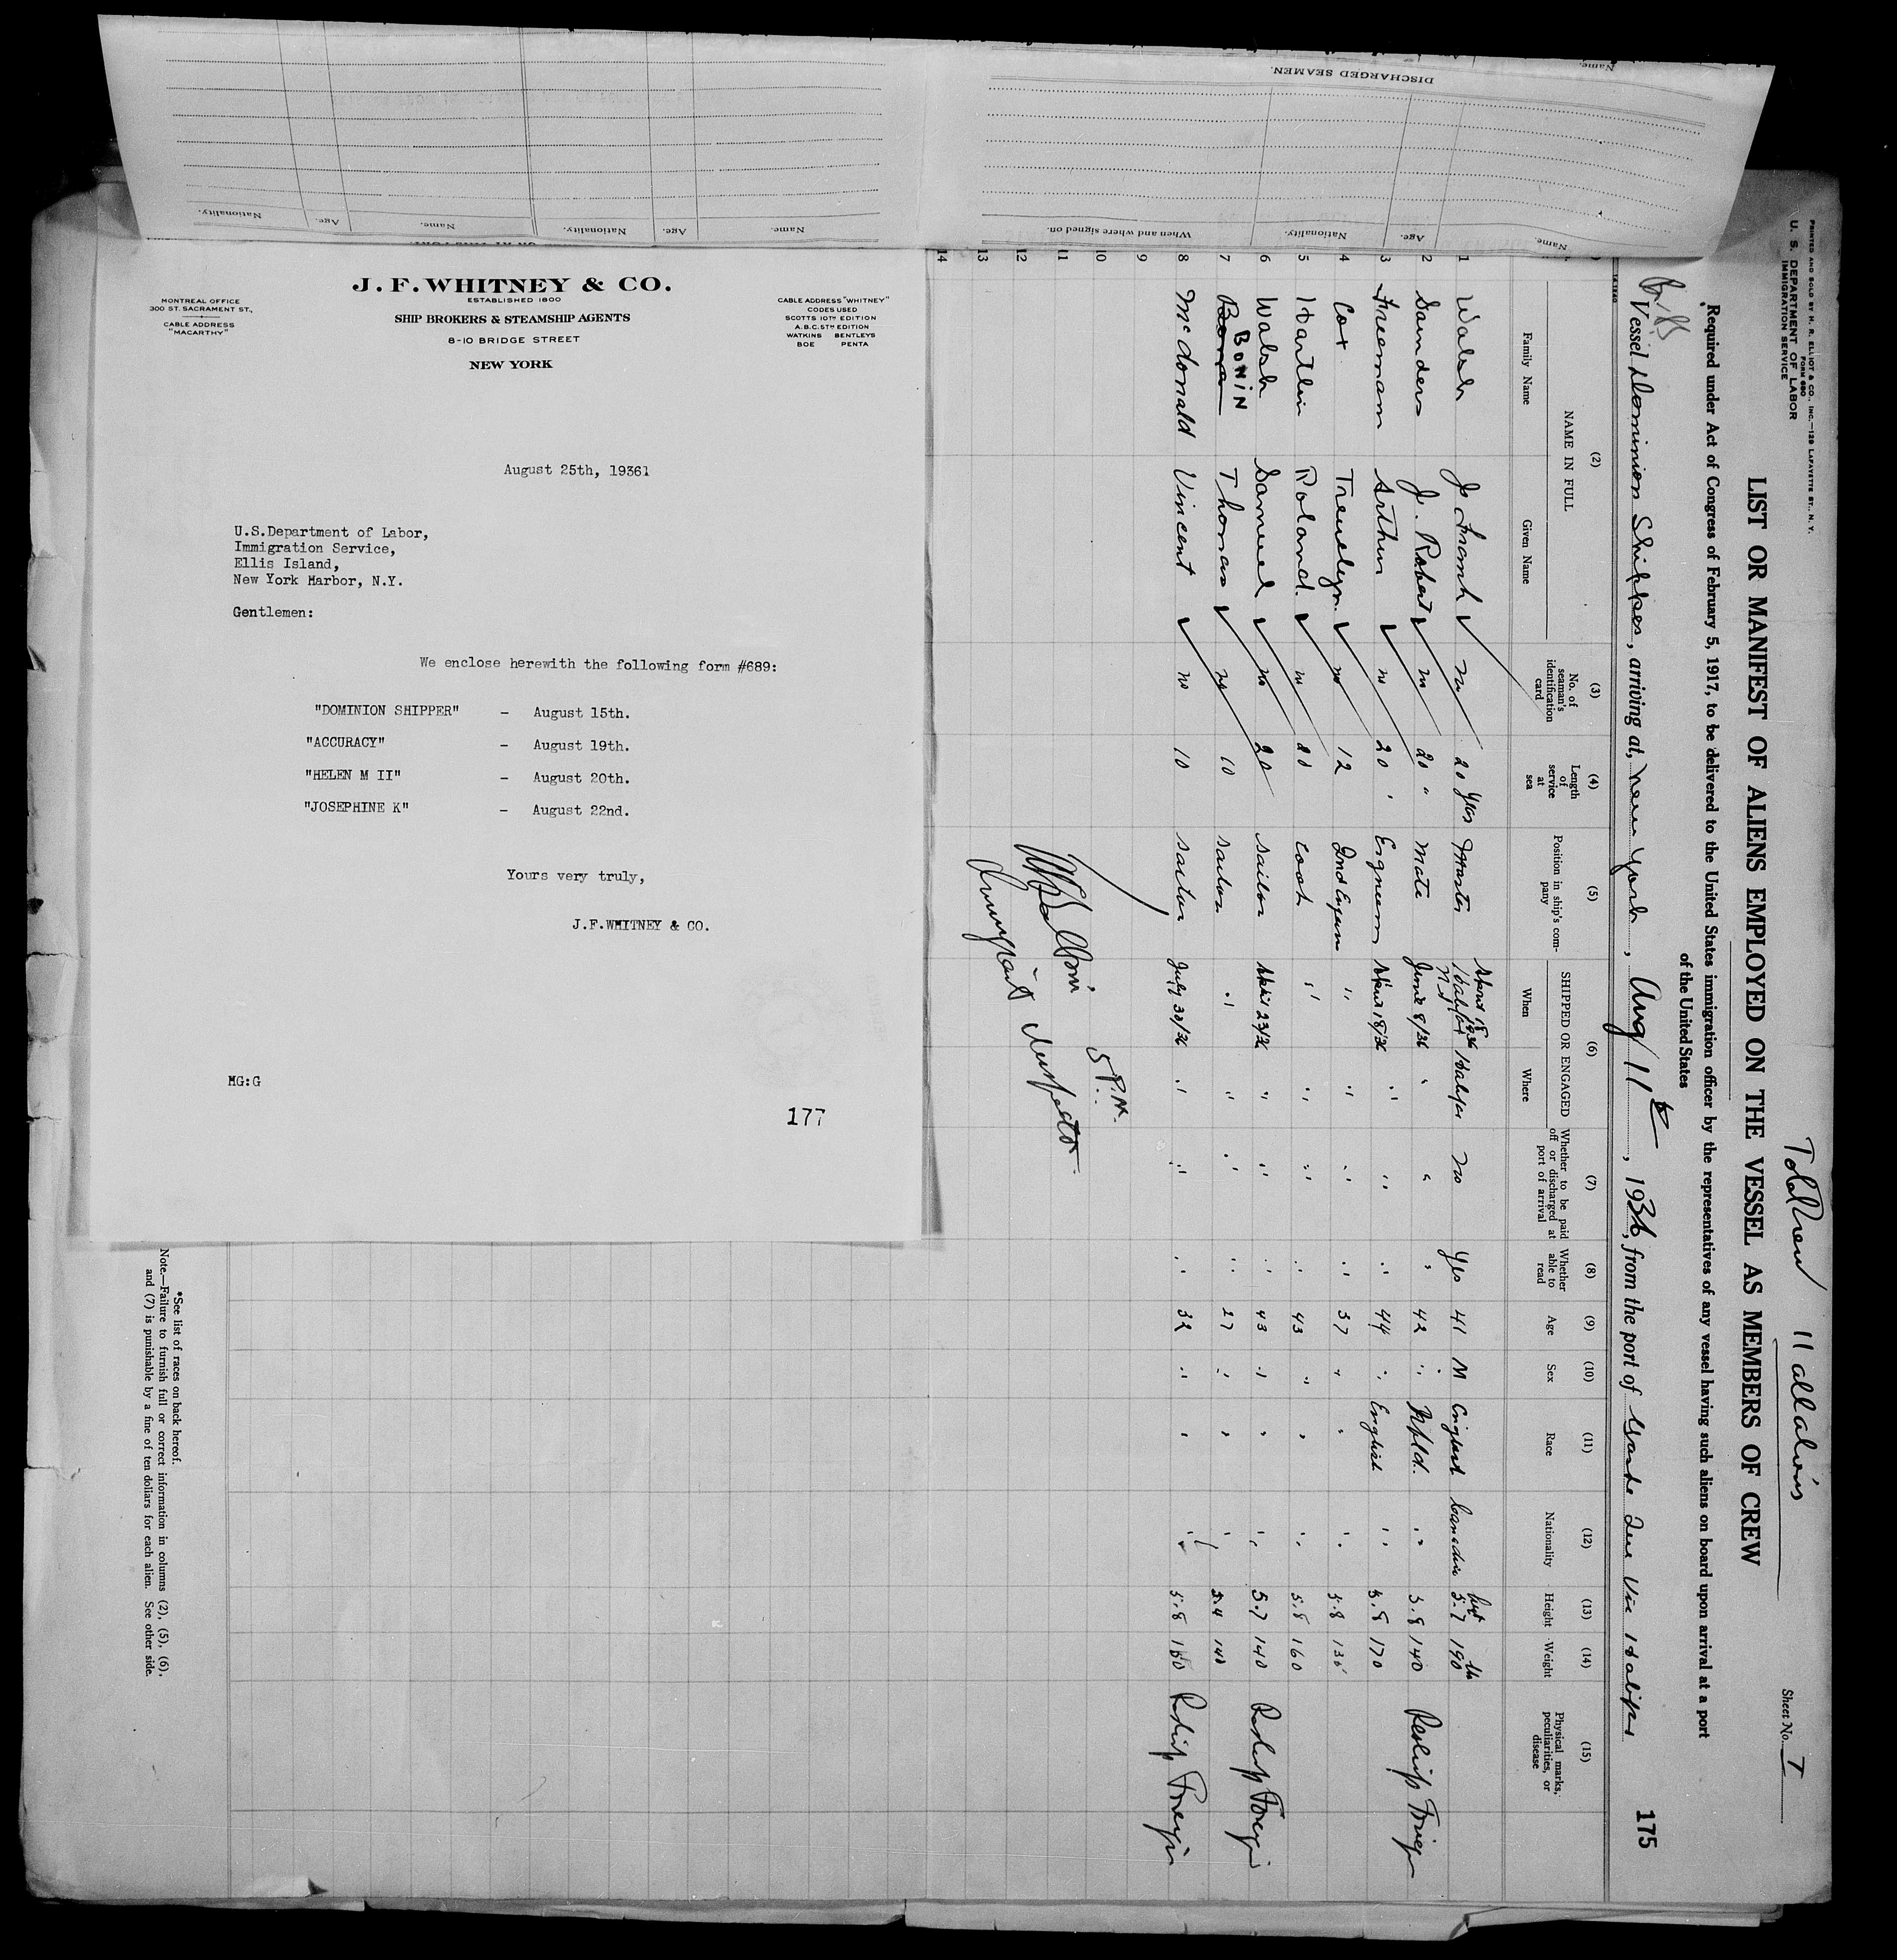 DISCHARGED SEAMEN.
Name.
Name.
Age.
Nationality.
When and where signed on.
Name.
Age.
Nationality.
Name.
Age.
Nationality.
J. F. WHITNEY & CO.
ESTABLISHED 1800
SHIP BROKERS & STEAMSHIP AGENTS
8-10 BRIDGE STREET
NEW YORK
MONTREAL OFFICE
300 ST. SACRAMENT ST.,
CABLE ADDRESS
"MACARTHY"
CABLE ADDRESS "WHITNEY"
CODES USED
SCOTTS 10TH EDITION
A.B.C. 5TH EDITION
WATKINS BENTLEYS
BOE PENTA
August 25th, 19361
U.S.Department of Labor,
Immigration Service,
Ellis Island,
New York Harbor, N.Y.
Gentlemen:
We enclose herewith the following form #689:
"DOMINION SHIPPER" - August 15th.
"ACCURACY" - August 19th.
"HELEN M II" - August 20th.
"JOSEPHINE K" - August 22nd.
Yours very truly,
J.F.WHITNEY & CO.
MG:G
177
PRINTED AND SOLD BY H. R. ELLIOT & CO., INC.—129 LAFAYETTE ST., N. Y.
FORM 680
U. S. DEPARTMENT OF LABOR
IMMIGRATION SERVICE
11 all aliens
Sheet No. 1
LIST OR MANIFEST OF ALIENS EMPLOYED ON THE VESSEL AS MEMBERS OF CREW
Required under Act of Congress of February 5, 1917, to be delivered to the United States immigration officer by the representatives of any vessel having such aliens on board upon arrival at a port
of the United States
175
Vessel Dominion Shipper, arriving at, New York, Aug 11th, 1936, from the port of Que Via Halifax
(2) (3) (4) (5) (6) (7) (8) (9) (10) (11) (12) (13) (14) (15)
NAME IN FULL
Family Name Given Name
No. of seaman's identification card
Length of service at sea
Position in ship's company
SHIPPED OR ENGAGED
When Where
Whether to be paid off or discharged at port of arrival
Whether able to read
Age
Sex
Race
Nationality
Height
Weight
Physical marks, peculiarities, or disease
1 Walsh J. Frank no 20 yrs Master April 18 1936 Halifax N S Halifax no Yes 41 M English Canadian 5.7 190
2 Saunders J. Robert no 20 " Mate June 8/36 " " " 42 " Nfld. " 5.8 140
3 Freeman Arthur no 20 " Engineer April 18/36 " " " 44 " English " 5.8 170
4 Cox no 12 2nd Engineer " " " " 37 " " " 5.8 135
5 Roland no Cook " " " " 43 " " " 5.8 160
6 Walsh Samuel no 20 Sailor April 23/36 " " " 43 " " " 5.7 140
7 BONIN Thomas no 10 Sailor " " " " 27 " " " 5.4 140
8 McDonald Vincent no 10 Sailor July 30/36 " " " 32 " " " 5.8 160
9
10
11
12
13
14
5 P.M.
Immigrant Inspector
*See list of races on back hereof.
Note.—Failure to furnish full or correct information in columns (2), (5), (6),
and (7) is punishable by a fine of ten dollars for each alien. See other side.